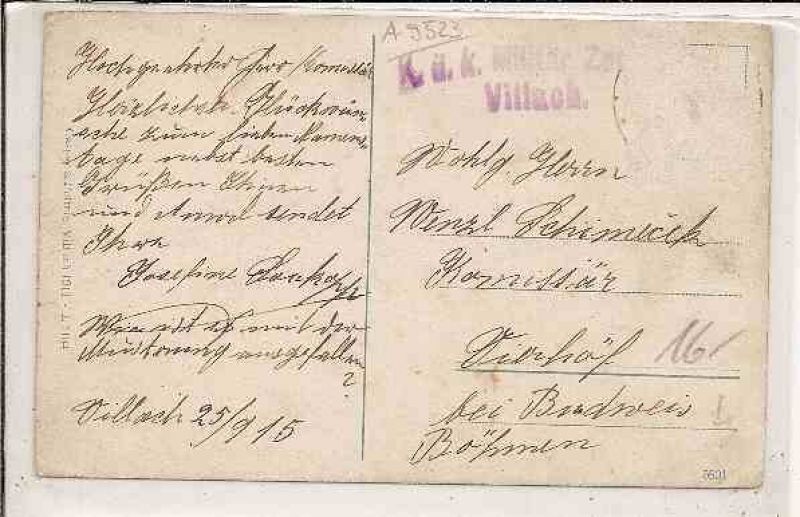 A 9523
K. u. k. Militär-Zen
Villach.
Hochgeehrter Herr Komissär
Herzlichste Glückwün-
sche zum lieben Namens-
tage nebst besten
Grüßen Ihnen
und Amol sendet
Ihre
Josefine
Wie ist es mit der
Musterung ausgefallen
?
Villach 25/9 15
Wohlg. Herrn
Wenzl Schimeček
Komissär
Vierhöf
16
bei Budweis
Böhmen